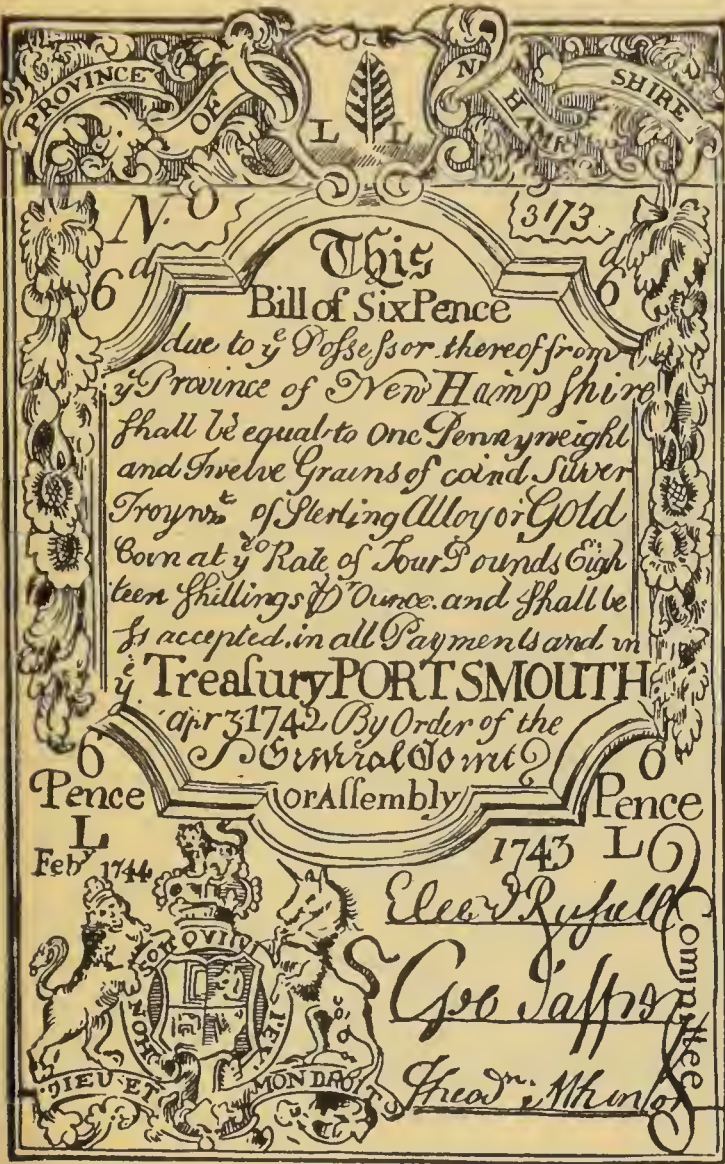 PROVINCE OF N HAMP SHIRE
L L
N.o 3173
6d 6d
This
Bill of Six Pence
due to yͤ Poſseſsor thereof from
yͤ Province of New Hampſhire
ſhall be equal to One Pennyweight
and Twelve Grains of coind Silver
Troywᵗ. of Sterling Alloy or Gold
Coin at yͤ Rate of Four Pounds Eigh
teen ſhillings ⅌ʳ Ounce. and ſhall be
ſs accepted. in all Payments and in
yͤ Treaſury PORTSMOUTH
apr 3 1742 By Order of the
General Court
or Aſſembly
6 Pence 6 Pence
L L
Feby 1744 1743
Eleazr Ruſsell
Geo Jaffrey
Theodr. Atkinſon
Committee
HONI SOIT QUI PE
DIEU ET MON DROIT